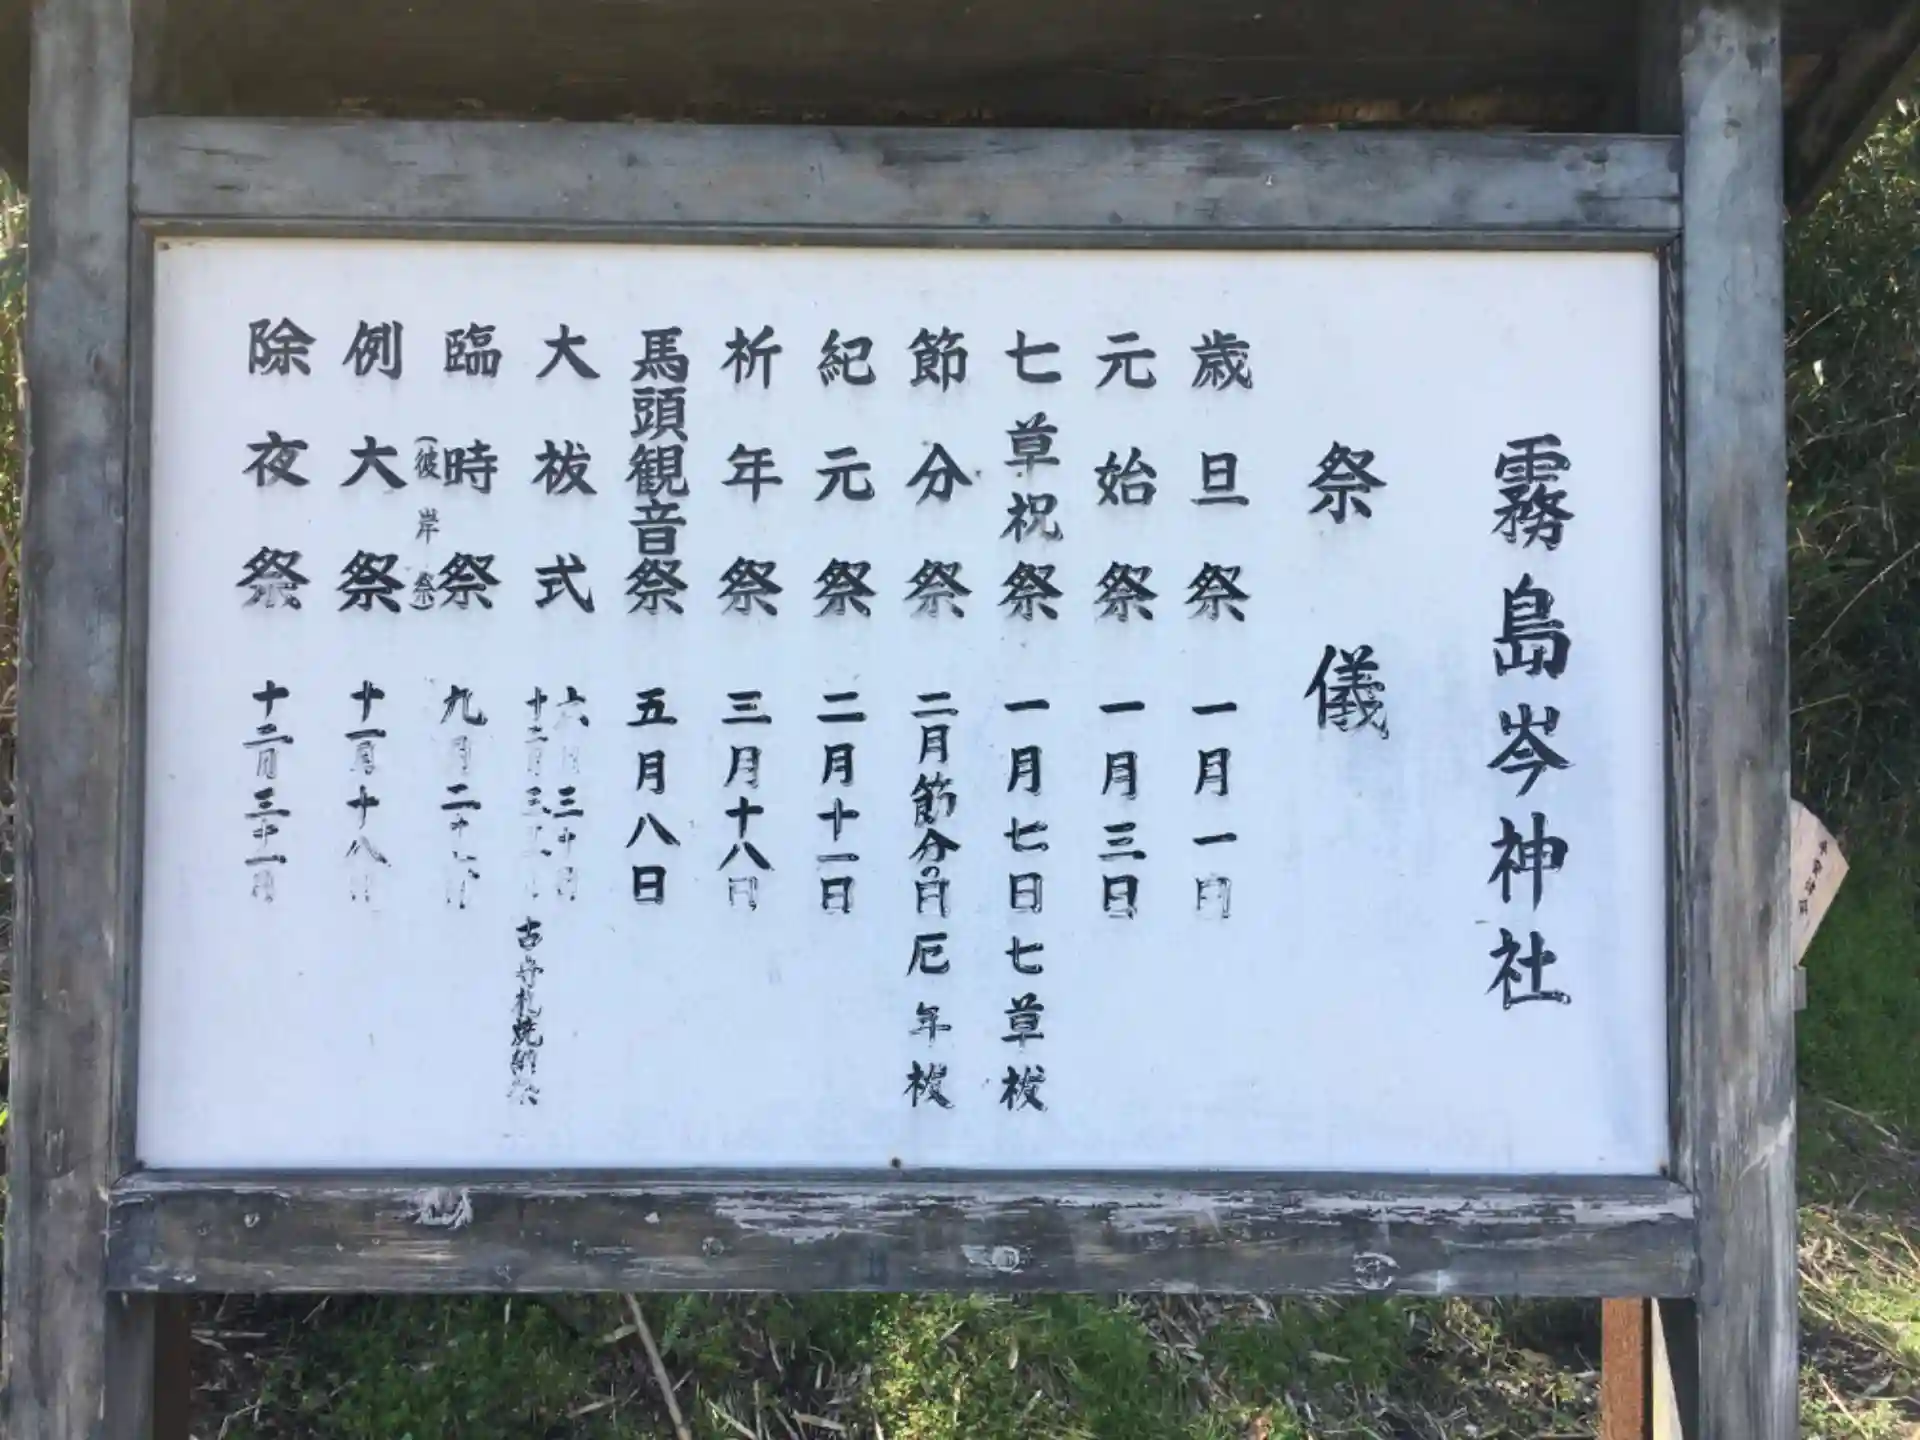 霧島岑神社
祭儀
歳旦祭 一月一日
元始祭 一月三日
七草祝祭 一月七日 七草祓
節分祭 二月節分の日 厄年祓
紀元祭 二月十一日
祈年祭 三月十八日
馬頭観音祭 五月八日
大祓式 六月三十日
十二月三十一日 古守札焼納祭
臨時祭 九月二十
(彼岸祭)
例大祭 十一月十八日
除夜祭 十二月三十一日